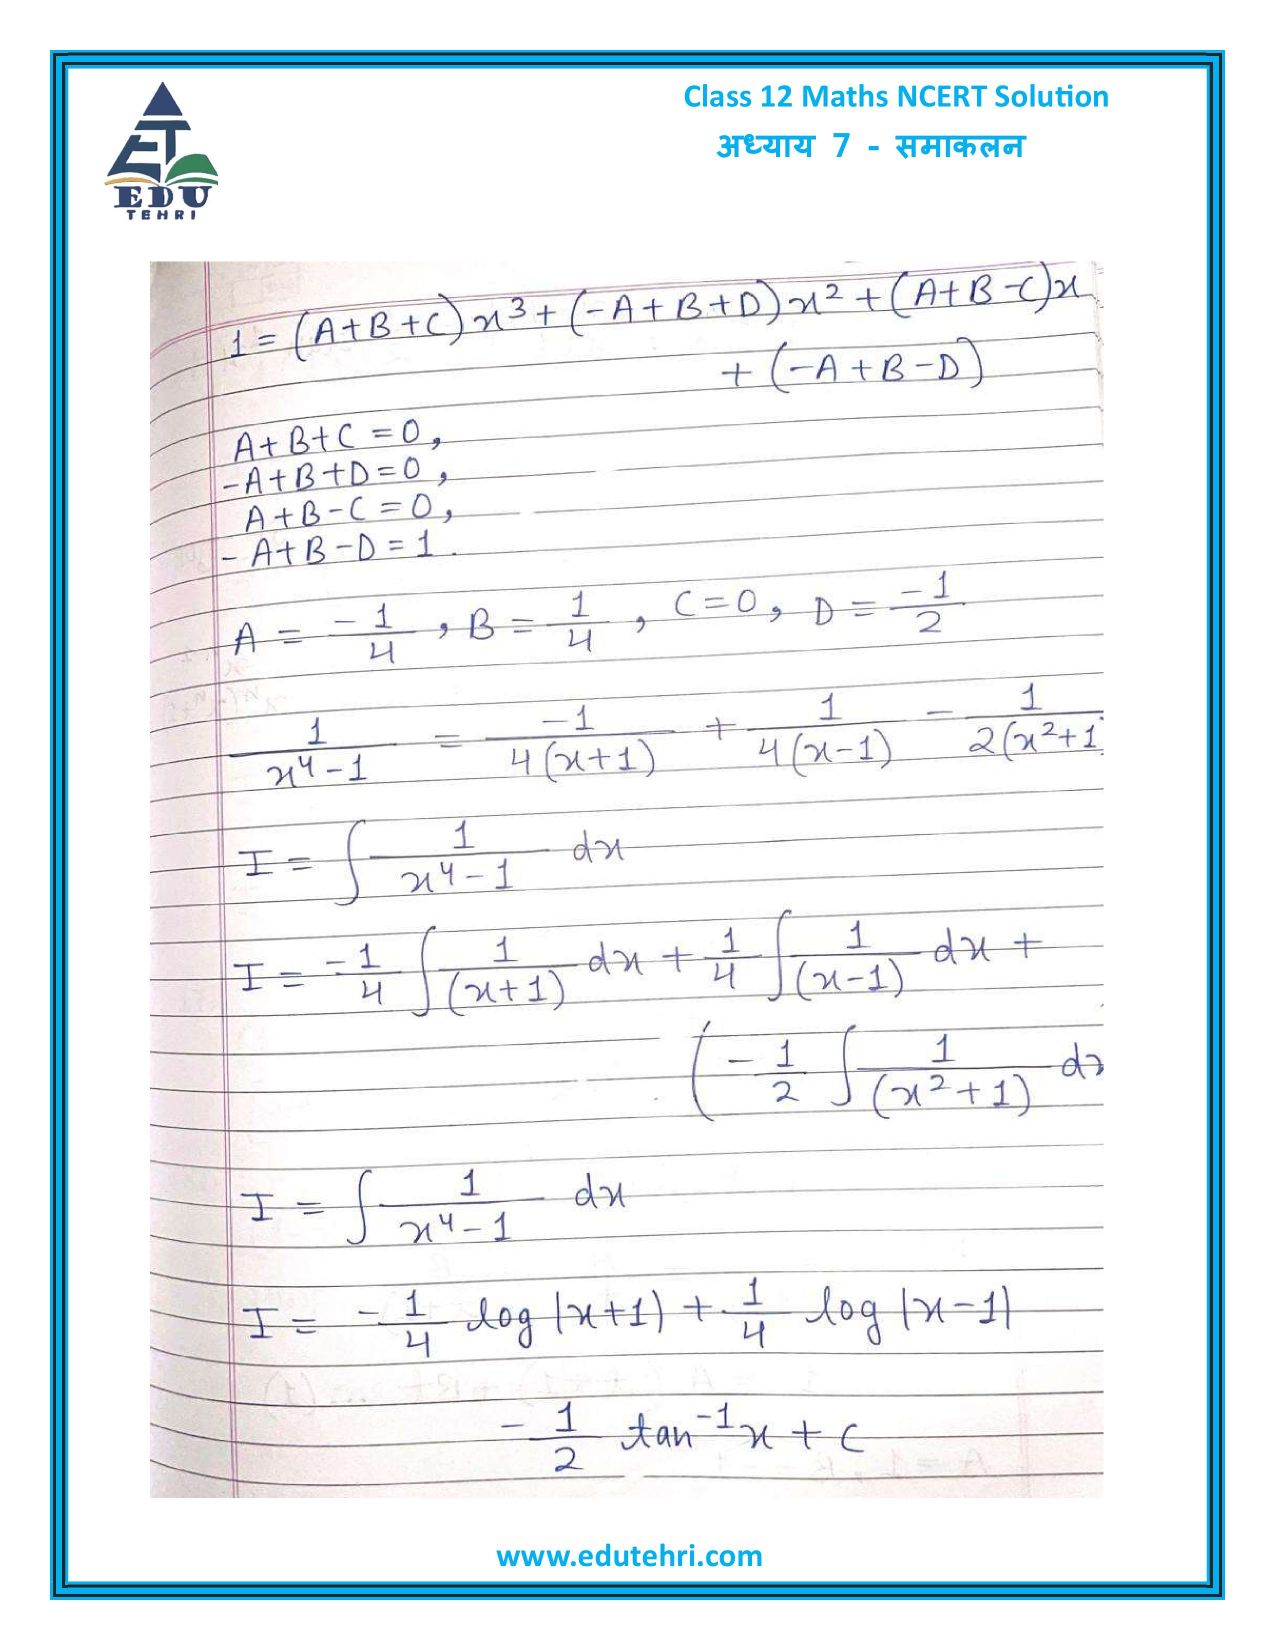 Class 12 Maths NCERT Solution
अध्याय 7 - समाकलन
EDU
TEHRI
1 = (A+B+C)x³ + (-A+B+D)x² + (A+B-C)x
+ (-A+B-D)
A+B+C = 0,
-A+B+D = 0,
A+B-C = 0,
-A+B-D = 1.
A = -1/4, B = 1/4, C = 0, D = -1/2
1/(x⁴-1) = -1/4(x+1) + 1/4(x-1) - 1/2(x²+1)
I = ∫ 1/(x⁴-1) dx
I = -1/4 ∫ 1/(x+1) dx + 1/4 ∫ 1/(x-1) dx +
(-1/2 ∫ 1/(x²+1) dx
I = ∫ 1/(x⁴-1) dx
I = -1/4 log|x+1| + 1/4 log|x-1|
-1/2 tan⁻¹x + C
www.edutehri.com